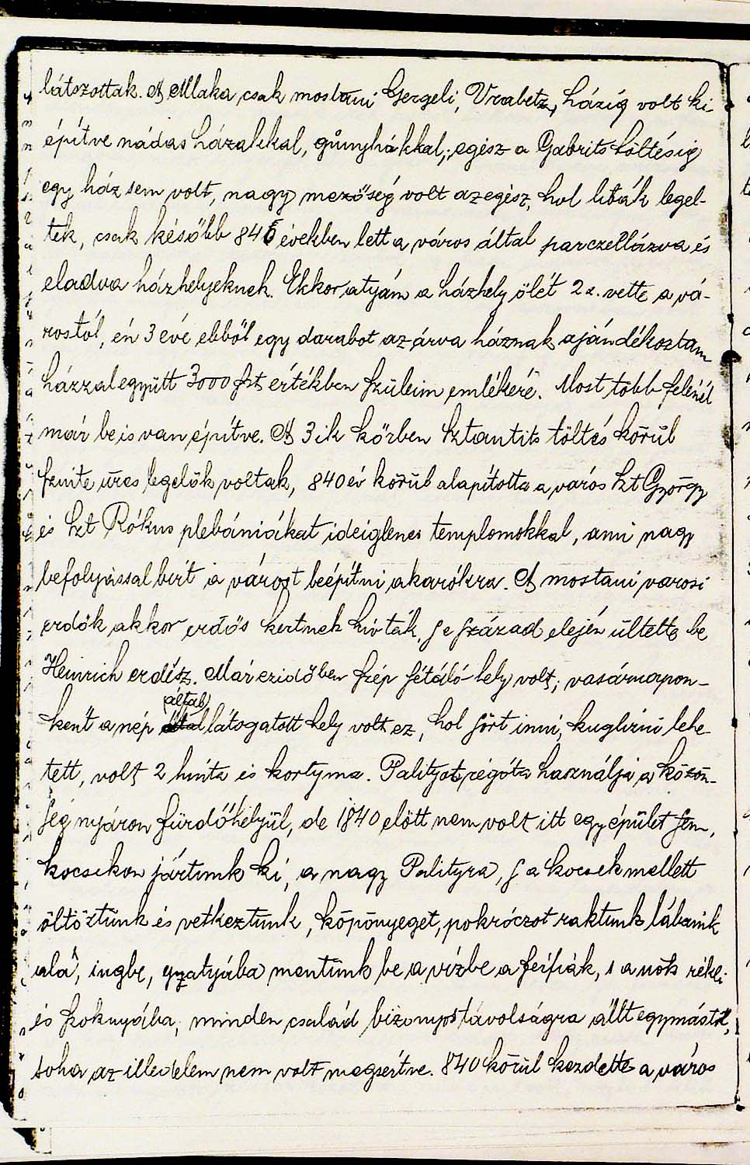 látszottak. A Mlaka, csak mostani Gergeli, Vrabetz, házig volt ki
építve nádas házakkal, gúnyhákkal, egész a Gabrits töltésig
egy ház sem volt, nagy mezőség volt az egész, hol libák legel-
tek, csak később 846 években lett a város által parczellázva és
eladva házhelyeknek. Ekkor atyám a házhely ölét 2 x. vette a vá-
rostól, én 3 évé ebből egy darabot az árva háznak ajándékoztam
házzal együtt 3000 frt értékben szüleim emlékére. Most több felénél
már be is van építve. A 3ik körben Sztantits töltés körül
szinte üres legelők voltak, 840 év körül alapította a város Szt György
és Szt Rókus plebániákat ideiglenes templomokkal, ami nagy
befolyással birt a várost beépítni akarókra. A mostani varosi
erdők akkor erdős kertnek hivták, s e század elején ültette be
Heinrich erdész. Már ez időben szép sétáló hely volt; vasárnapon-
ként a nép által látogatott hely volt ez, hol sört inni, kuglizni lehe-
tett, volt 2 hinta és kortyma. Palityot régóta használja a közön-
ség nyáron fürdőhelyül, de 1840 elött nem volt itt egy épület sem,
kocsikon jártunk ki, a nagy Palityra, s a kocsik mellett
öltöztünk és vetkeztünk, köpönyeget, pokróczot raktunk lábaink
alá, ingbe, gyatyába mentünk be a vizbe a férfiak, s a nők rékli
és szoknyába, minden család bizonyos távolságra állt egymástól,
soha az illedelem nem volt megsértve. 840 körül kezdette a város